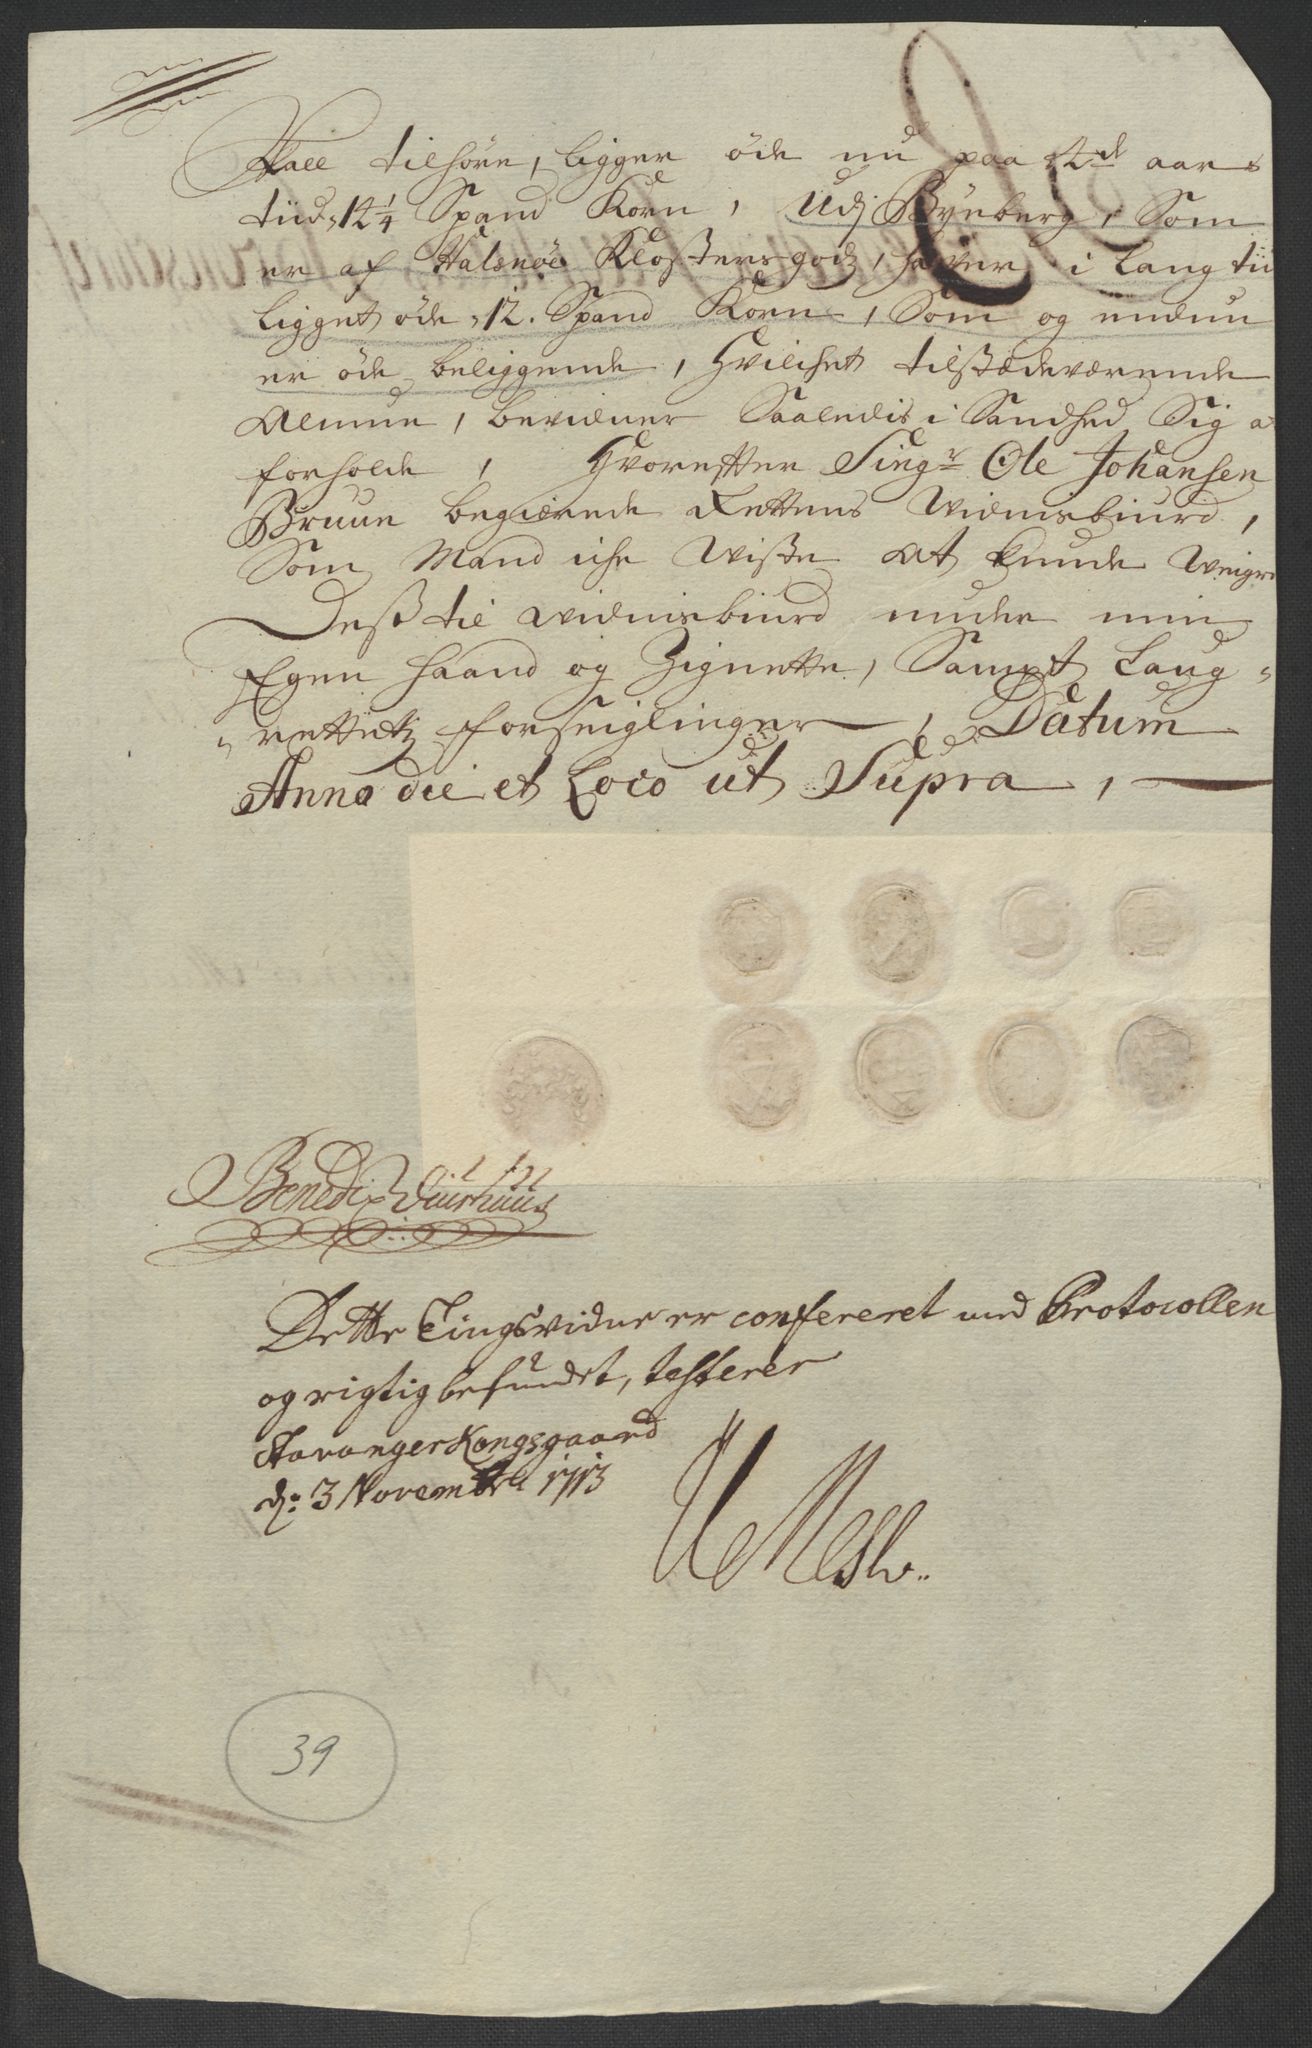 Hall tilhöre, ligger öde nu paa 2de aars
tiid, 12¼ Spand Korn, Udj Bÿeberg, Som
er af Halsnöe Klosters godz, hafver i lang tii
ligget öde, 12. Spand Korn, Som og endnu
er öde beliggende, Hvilchet tilstædeværende
Almue, bevidner Saaledis i Sandhed Sig a
forholde, Hvorefter Singr Ole Johansen
Bruun begiærede Rettens Vidnisbiurd,
Som Mand iche Viste At kunde Veigre
Dess til Vidnisbiurd under min
Egen haand og Zignette, Sampt Laug-
rettetz forseiglinger, Datum
Anno die et Loco ut Supra,
Benedix
Dette Tingsvidne er confereret med Protocollen
og rigtig befundet, testerer
Stavanger Kongsgaard
d: 3 Novembr 1713
39